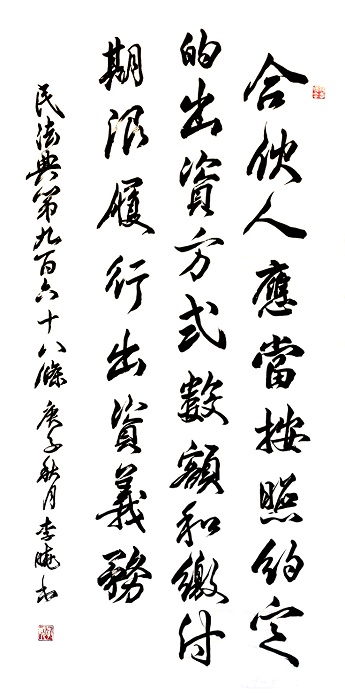 合伙人應當按照約定
的出資方式數額和繳付
期限履行出資義務
民法典第九百六十八條 庚子秋月李曉